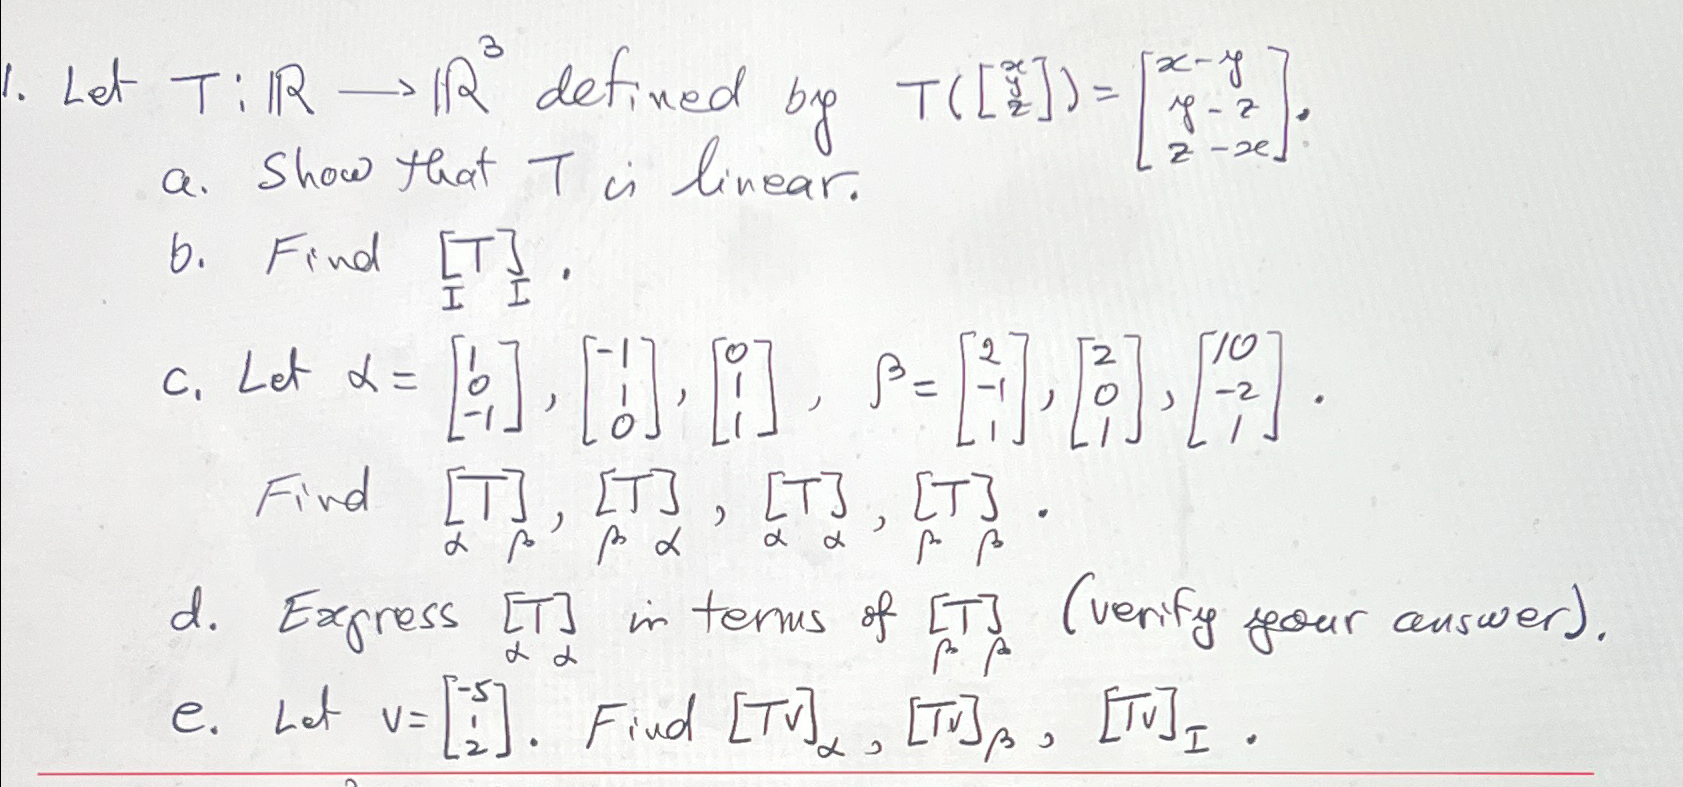 1. Let T: ℝ → ℝ³ defined by T([x y z]) = [x-y y-z z-x].
a. Show that T is linear.
b. Find [T] I I.
c. Let α = [1 0 -1], [-1 1 0], [0 1 1], β = [2 -1 1], [2 0 1], [10 -2 1].
Find [T] α β, [T] β α, [T] α α, [T] β β.
d. Express [T] α α in terms of [T] β β (verify your answer).
e. Let v = [-5 1 2]. Find [Tv]α, [Tv]β, [Tv]I.